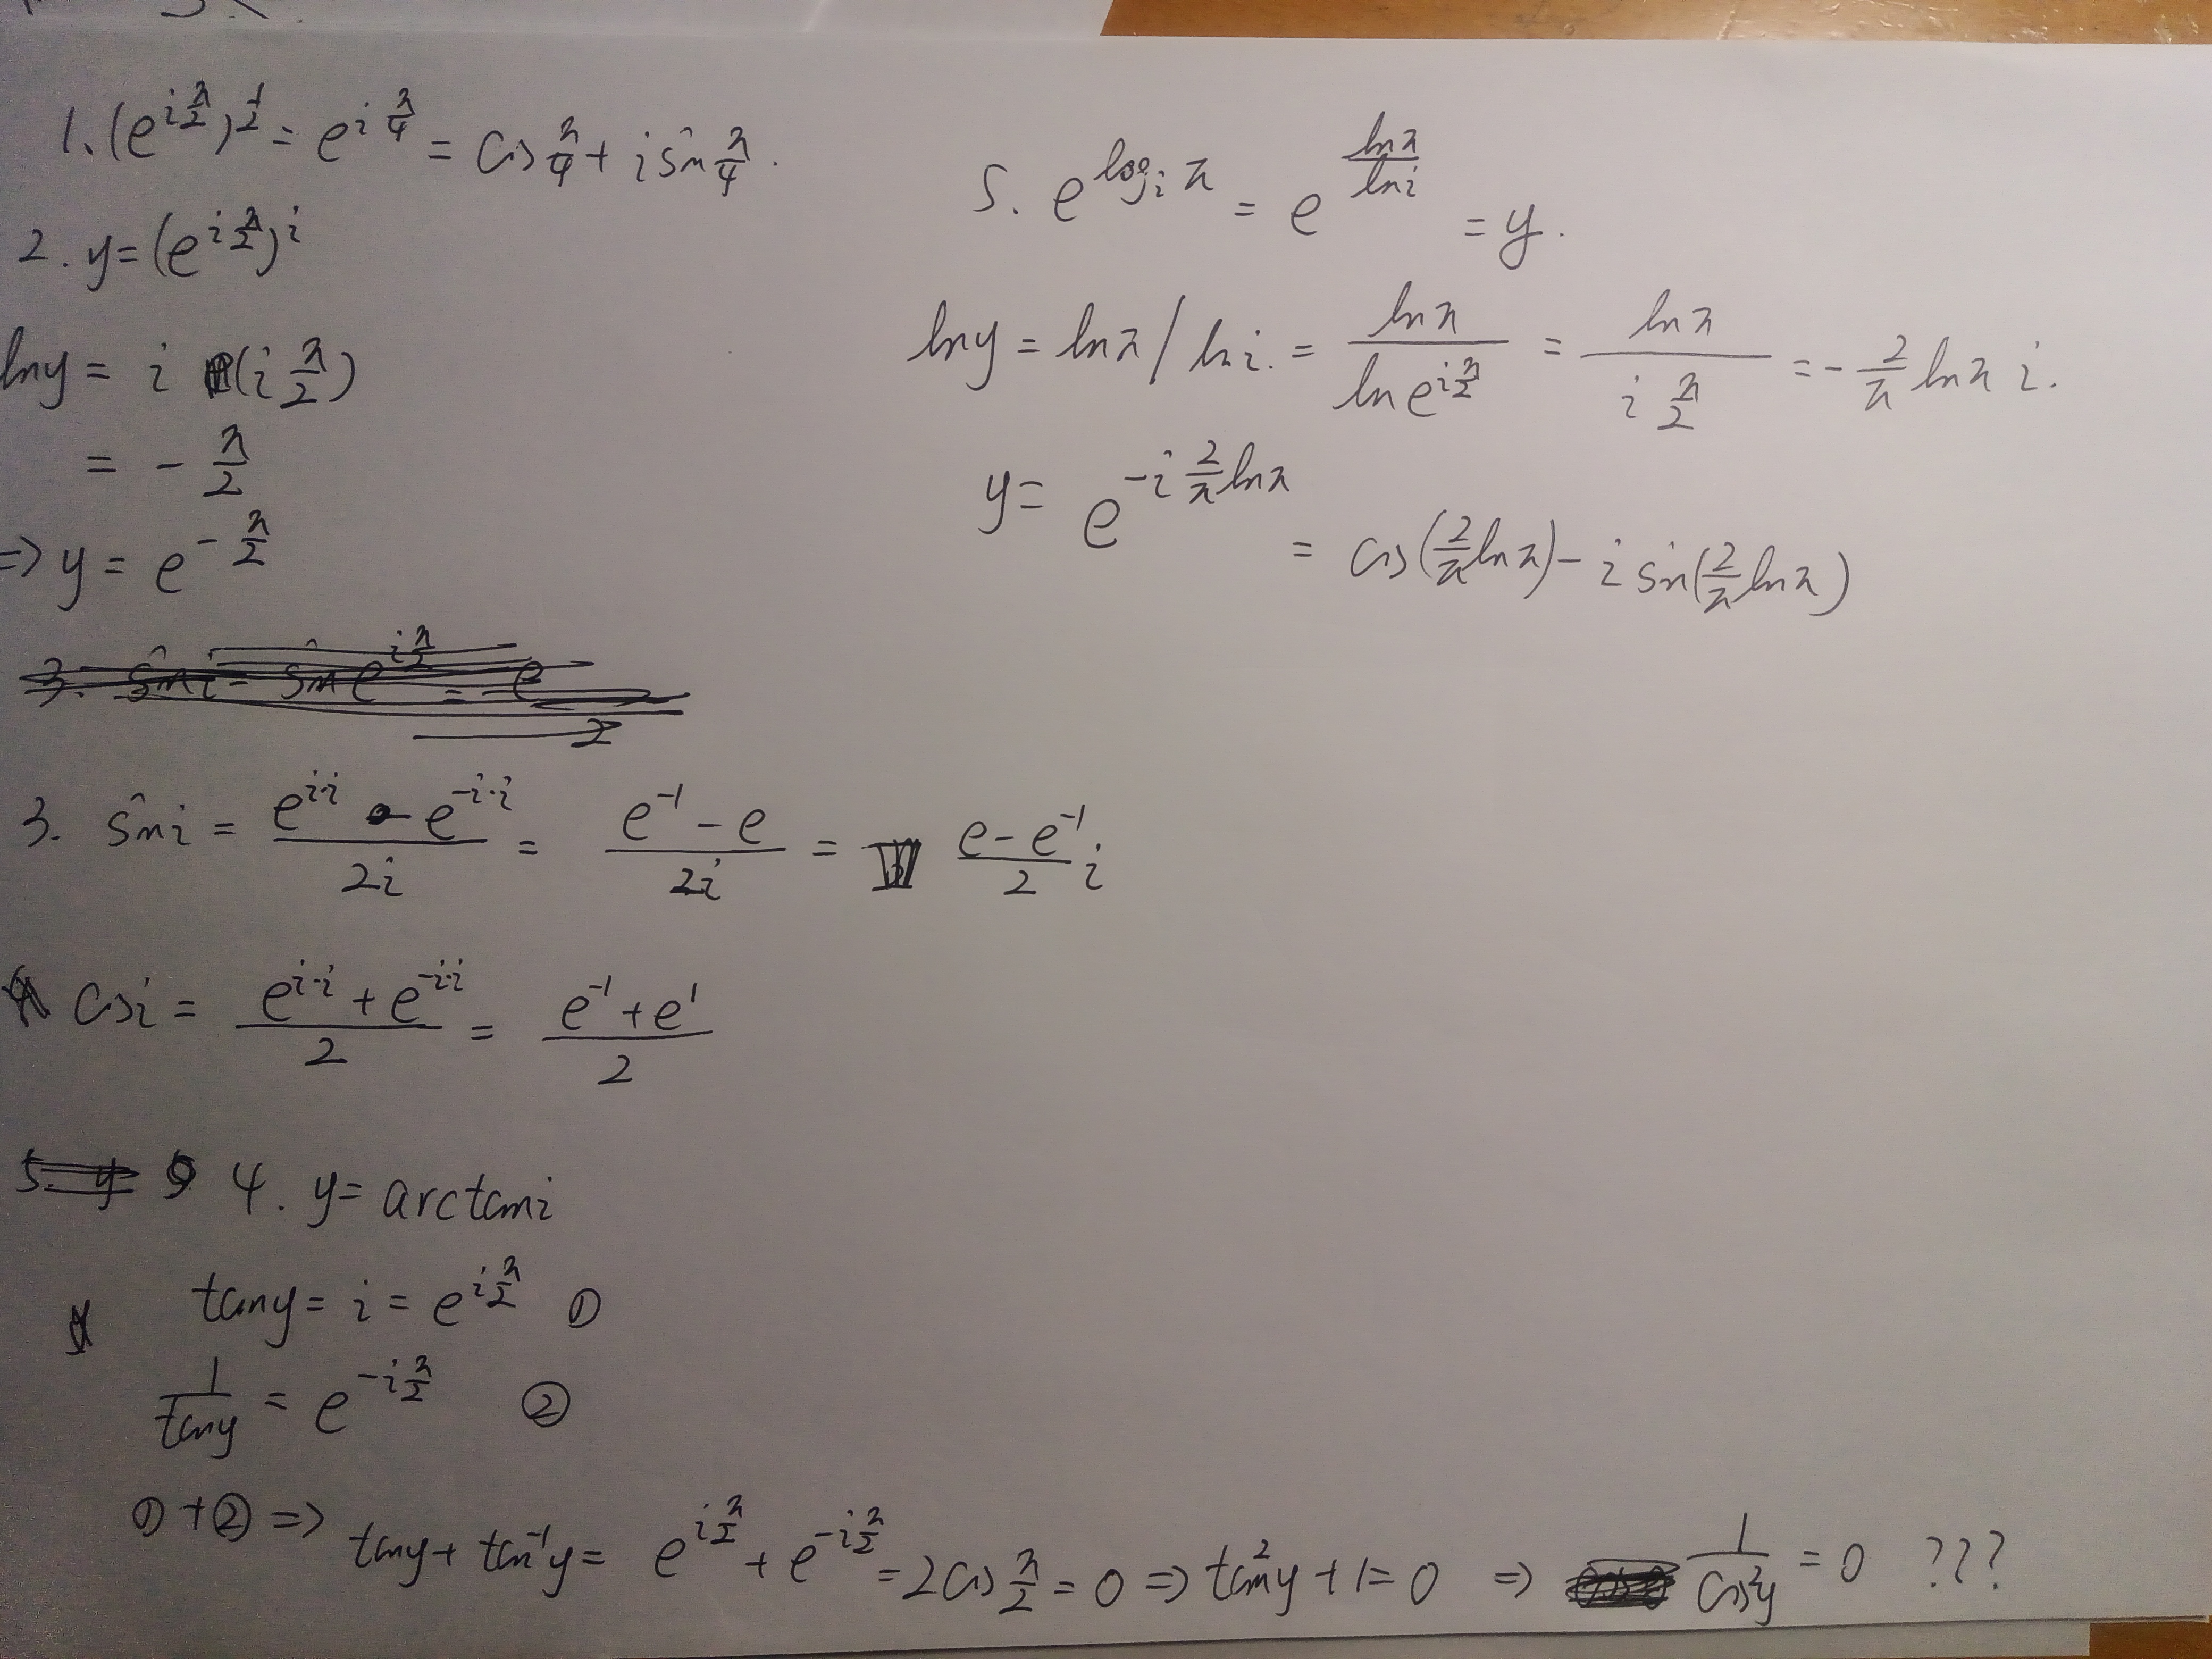 1. (e^{i π/2})^{1/2} = e^{i π/4} = cos π/4 + i sin π/4.
2. y = (e^{i π/2})^i
ln y = i (i π/2)
= - π/2
=> y = e^{- π/2}
3. sin i = (e^{i·i} - e^{-i·i})/(2i) = (e^{-1} - e)/(2i) = (e - e^{-1})/2 i
cos i = (e^{i·i} + e^{-i·i})/2 = (e^{-1} + e^1)/2
4. y = arctan i
tan y = i = e^{i π/2} ①
1/(tan y) = e^{-i π/2} ②
① + ② => tan y + tan^{-1} y = e^{i π/2} + e^{-i π/2} = 2 cos π/2 = 0 => tan^2 y + 1 = 0 => 1/(cos^2 y) = 0 ???
5. e^{log_i π} = e^{ln π / ln i} = y.
ln y = ln π / ln i. = ln π / (ln e^{i π/2}) = ln π / (i π/2) = - 2/π ln π i.
y = e^{-i 2/π ln π}
= cos(2/π ln π) - i sin(2/π ln π)